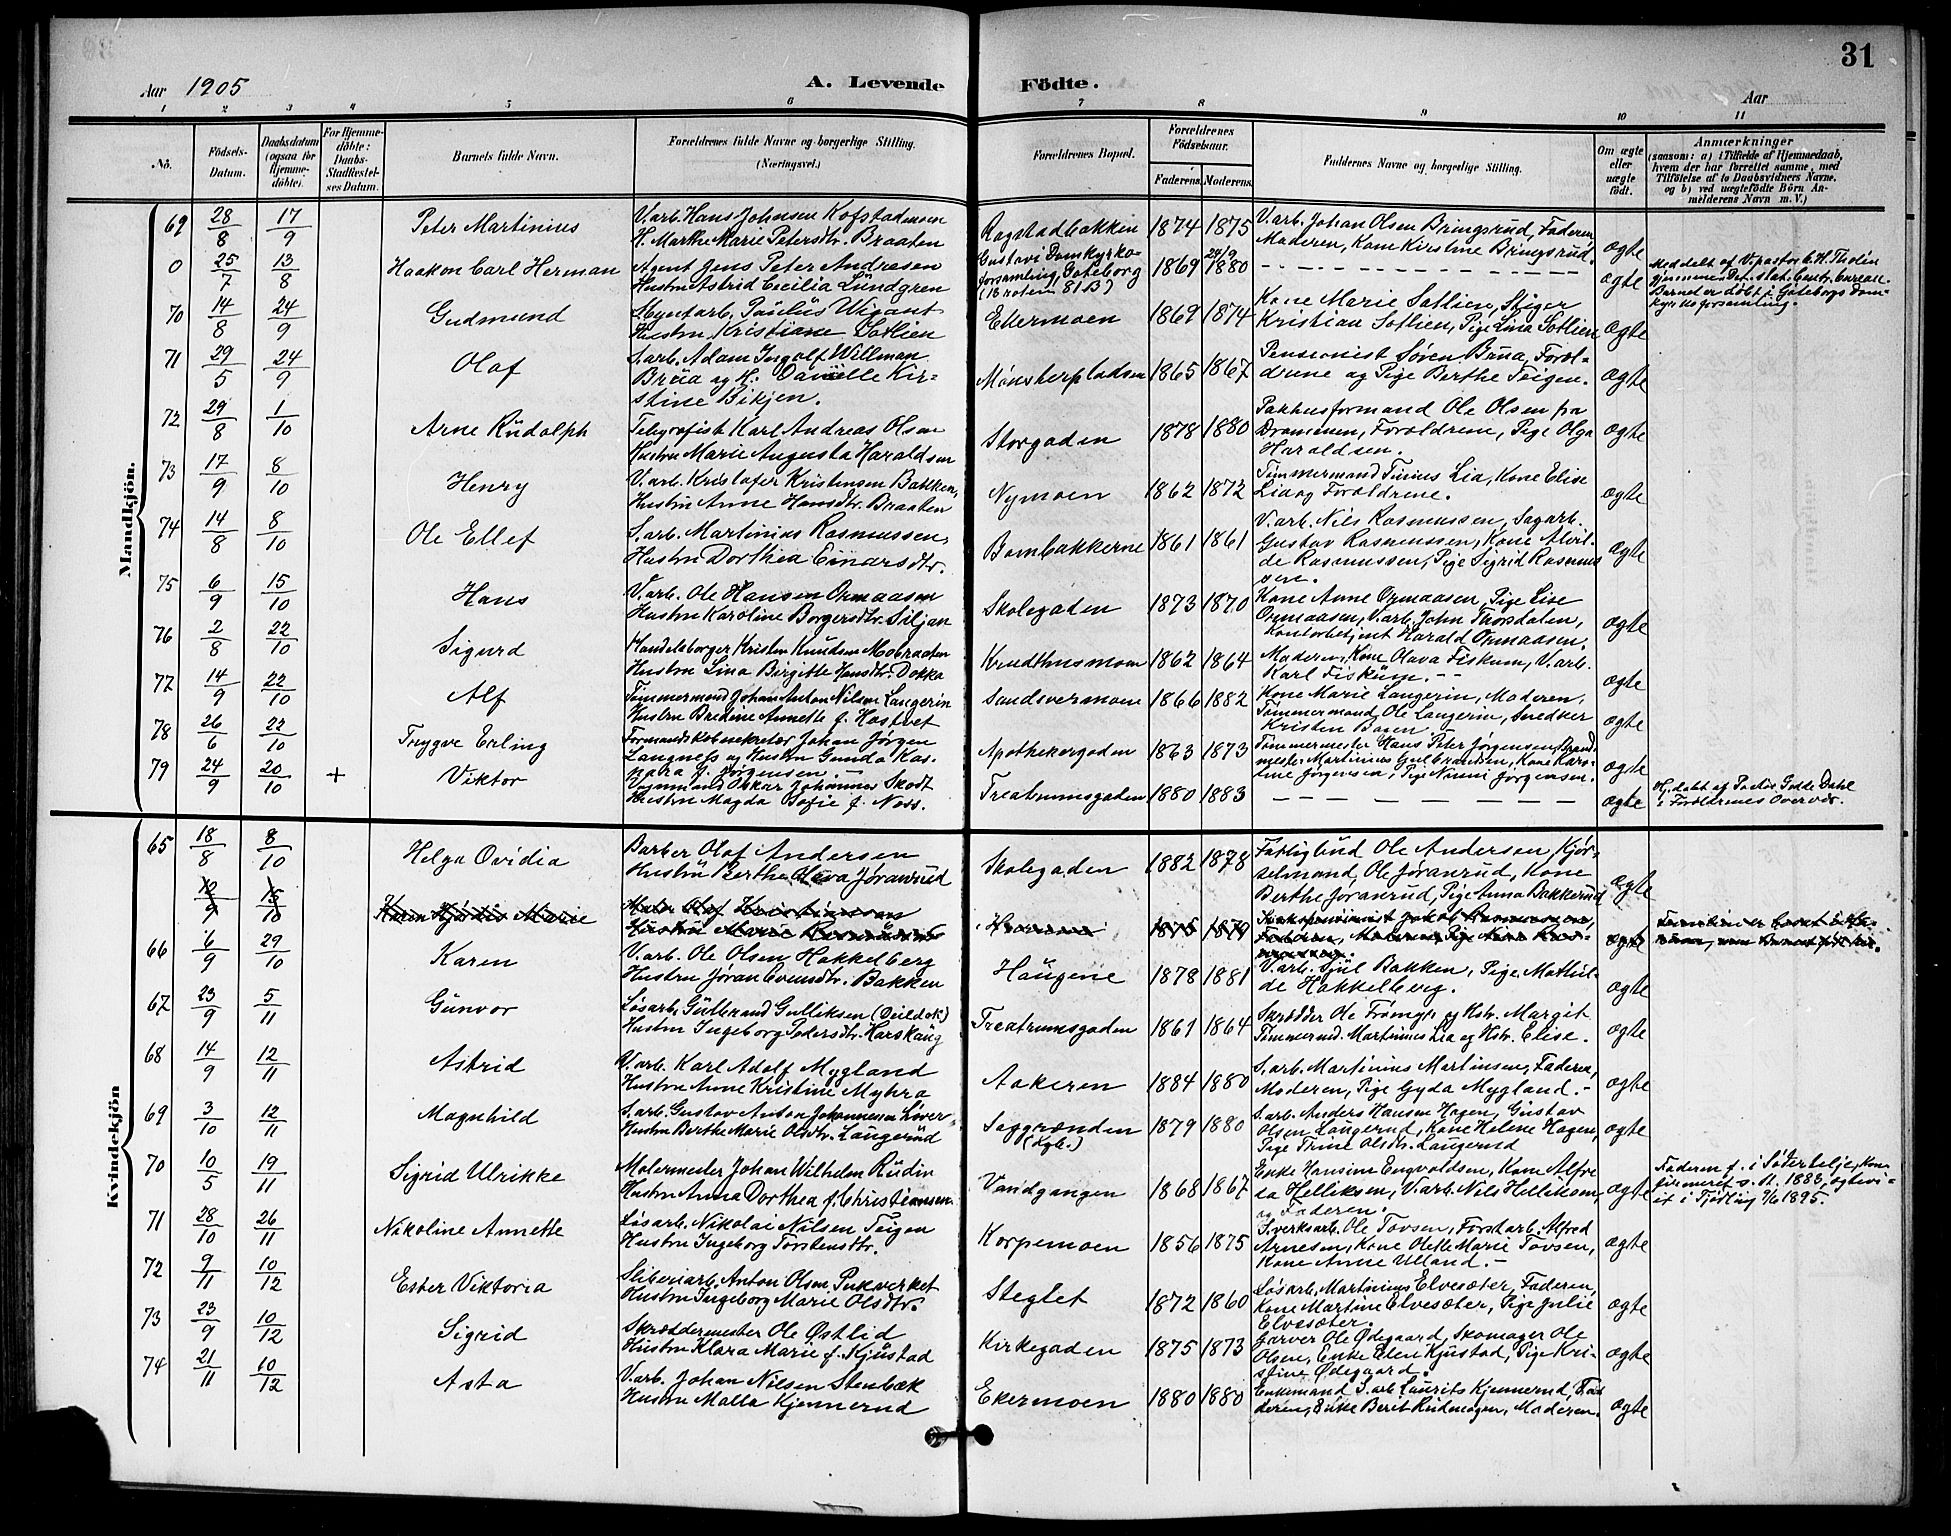 31
Aar 1905
A. Levende Födte.
Aar
1 2 3 4 5 6 7 8 9 10 11
No.
Födsels-Datum.
Daabsdatum (ogsaa for Hjemme-döbte).
For Hjemme-döbte: Daabs-Stadfæstel-ses Datum.
Barnets fulde Navn.
Forældrenes fulde Navne og borgerlige Stilling. (Næringsvei.)
Forældrenes Bopæl.
Forældrenes Födselsaar.
Faderens. Moderens.
Faddernes Navne og borgerlige Stilling.
Om ægte eller uægte födt.
Anmærkninger
(saasom: a) i Tilfælde af Hjemmedaab, hvem der har forrettet samme, med Tilföielse af to Daabsvidners Navne, og b) ved uægtefödte Börn An-melderens Navn m. V.)
Mandkjön.
69 28/8 17/9 Peter Martinius
V.arb. Hans Johnsen Kofstadmoen
H. Marthe Marie Petersdtr. Braaten
Ragstadbakken 1874 1875
V.arb. Johan Olsen Bringsrud, Faderen
Moderen, Kone Kirstine Bringsrud. ægte
0 25/7 13/8 Haakon Carl Herman
Agent Jens Peter Andresen
Hustru Astrid Cecilia Lundgren
Gustavi Domkyrko-
forsamling, Göteborg
(16 roten 81B) 1869 24/9 1880 ægte
Meddelt af V.pastor C. H. Thodin
gjennem Det stat. Centr. bureau.
Barnet er døbt i Göteborgs Dom-
kyrkoforsamling.
70 14/8 24/9 Gudmund
Myntarb. Paulus Wigant
Hustru Kristiane Sotlien
Ekermoen 1869 1874
Kone Marie Sotlien, Stiger
Kristian Sotlien, Pige Lina Sotlien ægte
71 29/5 24/9 Olaf
S.arb. Adam Ingolf Willman
Brua og H. Danielle Kir-
stine Bikjen.
Mønsterpladsen 1865 1867
Pensionist Søren Brua, Foræl-
drene og Pige Berthe Teigen. ægte
72 29/8 1/10 Arne Rudolph
Telegrafist Karl Andreas Olsen
Hustru Marie Augusta Haraldsen
Storgaden 1878 1880
Pakhusformand Ole Olsen fra
Drammen, Forældrene, Pige Olga
Haraldsen. ægte
73 17/9 8/10 Henry
V.arb. Kristofer Kristensen Bakken,
Hustru Anne Hansdtr. Braaten
Nymoen 1862 1872
Tømmermand Tinius Lia, Kone Elise
Lia og Forældrene. ægte
74 14/8 8/10 Ole Ellef
S.arb. Martinius Rasmussen,
Hustru Dorthea Einarsdtr.
Bombakkerne 1861 1861
V.arb. Nils Rasmussen, Sagarb.
Gustav Rasmussen, Kone Alvil-
de Rasmussen, Pige Sigrid Rasmus
sen. ægte
75 6/9 15/10 Hans
V.arb. Ole Hansen Ormaasen
Hustru Karoline Borgersdtr. Siljan
Skolegaden 1873 1870
Kone Anne Ormaasen, Pige Lise
Ormaasen, V.arb. John Thorsdalen,
Kontorbetjent Harald Ormaasen. ægte
76 2/8 22/10 Sigurd
Handelsborger Kristen Knudsen Mobraaten
Hustru Lina Birgitte Hansdtr. Dokka
Krudthusmoen 1862 1864
Moderen, Kone Olava Fiskum, V.arb.
Karl Fiskum. ægte
77 14/9 22/10 Alf
Tømmermand Johan Anton Nilsen Langerin
Hustru Bredine Annette f. Hostvet
Sandsvermoen 1866 1882
Kone Marie Langerin, Moderen,
Tømmermand Ole Langerin, Snedker
Kristen Baren. ægte
78 26/6 22/10 Trygve Erling
Formandskabssekretær Johan Jørgen
Langness og Hustru Gunda Kas-
para f. Jørgensen.
Apothekergaden 1863 1873
Tømmermester Hans Peter Jørgensen, Brand-
mester Martinius Gulbrandsen, Kone Karo-
line Jørgensen, Pige Ninni Jørgensen. ægte
79 24/9 20/10 + Viktor
Vognmand Oskar Johannes Skodt
Hustru Magda Sofie f. Noss.
Treatrumsgaden 1880 1883 ægte
Hj. døbt af Pastor Gødde Dahl
i Forældrenes Overvær.
Kvindekjön
65 18/8 8/10 Helga Ovidia
Barker Olaf Andersen
Hustru Berthe Olava Jøransrud
Skolegaden 1882 1878
Fattiglæm Ole Andersen, Kjør-
selmand, Ole Jøransrud, Kone
Berthe Jøransrud, Pige Anna Bakkerud ægte
10/9 15/10 Karen Hjørdis Marie
Maler Olaf Kristiansen
Haugene 1875 1879 ægte
66 6/9 29/10 Karen
V.arb. Ole Olsen Hakkelberg
Hustru Jøran Evensdtr. Bakken
Haugene 1878 1881
V.arb. Sjul Bakken, Pige Mathil-
de Hakkelberg. ægte
67 23/9 5/11 Gunvor
Løsarb. Gulbrand Gulliksen
Hustru Ingeborg Pedersdtr. Karskaug
Treatrumsgaden 1861 1864
Skrædder Ole Frøngt. og Hstr. Margit
Tømmermd. Martinius Lia og Hstr. Elise. ægte
68 14/9 12/11 Astrid
V.arb. Karl Adolf Mygland
Hustru Anne Kristine Myhra
Aakeren 1884 1880
S.arb. Martinius Martinsen, Faderen,
Moderen, Pige Gyda Mygland. ægte
69 3/10 12/11 Magnhild
S.arb. Gustav Anton Johannesen Løver
Hustru Berthe Marie Olsdtr. Laugerud
Saggrænden
(Kgb.) 1879 1880
S.arb. Anders Hansen Hagen, Gustav
Olsen Laugerud, Kone Helene Hagen,
Pige Trine Olsdtr. Laugerud ægte
70 10/5 19/11 Sigrid Ulrikke
Malermester Johan Wilhelm Rudin
Hustru Anna Dorthea f. Christiansen
Vandgangen 1868 1867
Enke Hansine Engvoldsen, Kone Alfre
da Helliksen, V.arb. Nils Helliksen,
og Faderen. ægte
Faderen f. i Södertelje, Kon-
firmeret s. st. 1883, ogtevi-
et i Tjødling 7/6 1895.
71 28/10 26/11 Nikoline Annette
Løsarb. Nikolai Nilsen Teigen
Hustru Ingeborg Torstensdtr.
Korpemoen 1856 1875
S.verksarb. Ole Tovsen, Forstarb. Alfred
Arnesen, Kone Oleke Marie Tovsen,
Kone Anne Ulland. ægte
72 9/11 10/12 Ester Viktoria
Sliberiarb. Anton Olsen Pukverket
Hustru Ingeborg Marie Olsdtr.
Steglet 1872 1860
Løsarb. Martinius Elvesæter, Faderen,
Kone Martine Elvesæter, Pige Julie
Elvesæter. ægte
73 23/9 10/12 Sigrid
Skræddermester Ole Østlid
Hustru Klara Marie f. Kjustad
Kirkegaden 1875 1873
Garver Ole Ødegaard, Skomager Ole
Olsen, Enke Elen Kjustad, Pige Kri-
stine Ødegaard. ægte
74 21/11 10/12 Asta
V.arb. Johan Nilsen Stenbæk
Hustru Malla Kjennerud
Ekermoen 1880 1880
Enkemand S.arb. Laurits Kjennerud, Fad
deren, Enke Berit Rudmogen, Moderen. ægte